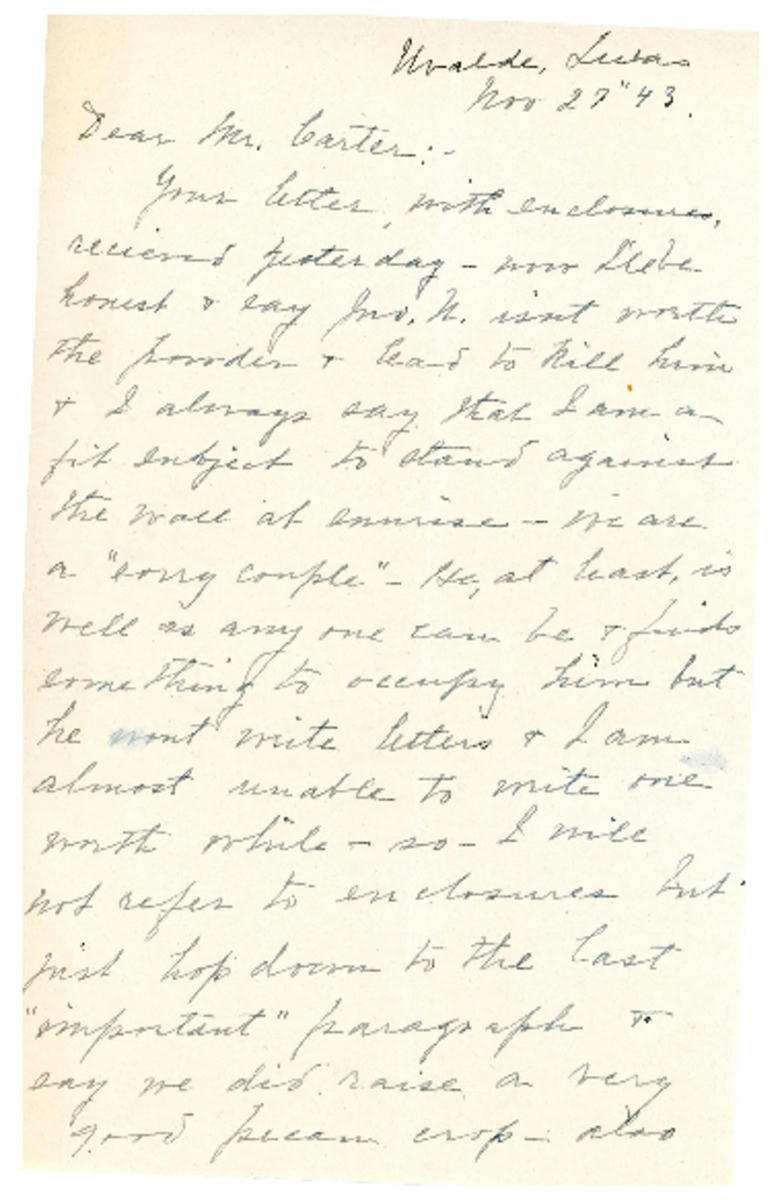 Uvalde, Texas
Nov 27" 43.
Dear Mr. Carter:-
Your letter, with enclosures,
recieved yesterday - now I'll be
honest & say Jno. N. isnt worth
the powder & lead to kill him
& I always say that I am a
fit subject to stand against
the wall at sunrise - we are
a "sorry couple" - He, at least, is
well as any one can be & finds
something to occupy him but
he wont write letters & I am
almost unable to write one
worth while - so - I will
not refer to enclosures but
just hop down to the last
"important" paragraph &
say we did raise a very
good pecan crop - also